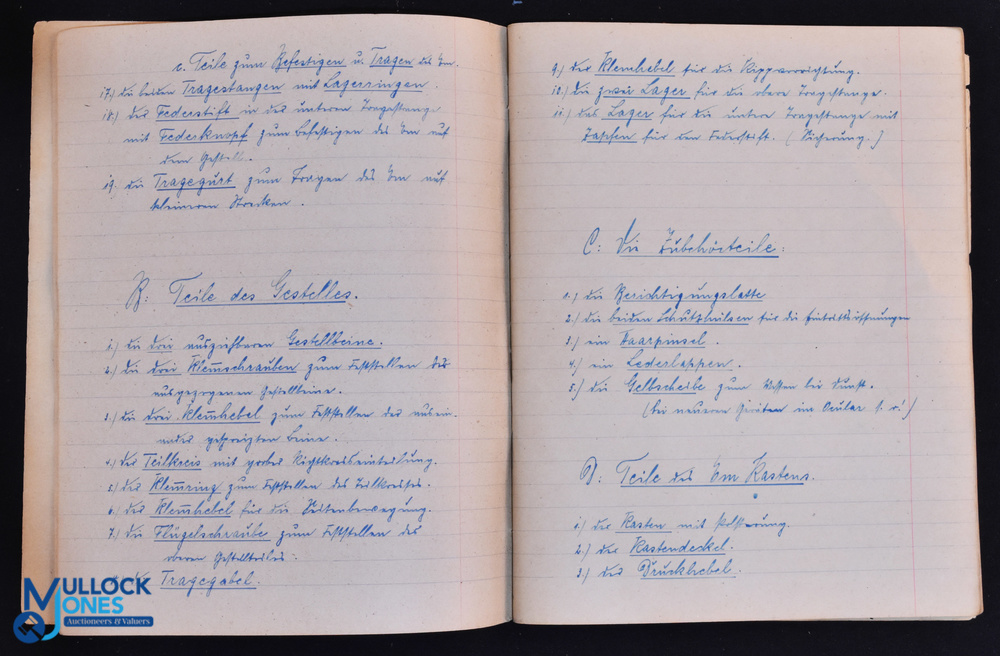 c. Teile zum Befestigen u. Tragen des Em.
17.) die beiden Tragestangen mit Lagerringen:
18.) der Federstift in der unteren Tragestange
mit Federknopf zum Befestigen des Em auf
dem Gestell.
19. die Tragegurt zum Tragen des Em auf
kleineren Strecken.
B: Teile des Gestelles.
1.) die drei ausziehbaren Gestellbeine.
2.) die drei Klemschrauben zum Feststellen der
ausgezogenen Gestellbeine.
3.) die drei Klemhebel zum Feststellen der ausein-
ander gespreizten Beine.
4.) der Teilkreis mit grober Richtkreiseinteilung.
5.) der Klemring zum Feststellen des Teilkreises.
6.) der Klemhebel für die Seitenbewegung.
7.) die Flügelschraube zum Feststellen des
oberen Gestellteiles:
Tragegabel.
9.) der Klemhebel für die Kippvorrichtung.
10.) die zwei Lager für die obere Tragestange.
11.) das Lager für die untere Tragestange mit
Zapfen für den Federstift. (Sicherung.)
C: Die Zubehörteile:
1.) die Berichtigungslatte
2.) die beiden Schutzhülsen für die Eintrittsöffnungen
3.) ein Haarpinsel.
4.) ein Lederlappen.
5.) die Gelbscheibe zum Messen bei Dunst.
(bei neueren Geräten im Ocular s. o!)
D: Teile des Em Kastens.
1.) der Kasten mit Polsterung.
2.) der Kastendeckel.
3.) der Druckhebel.
MULLOCK
JONES
Auctioneers & Valuers